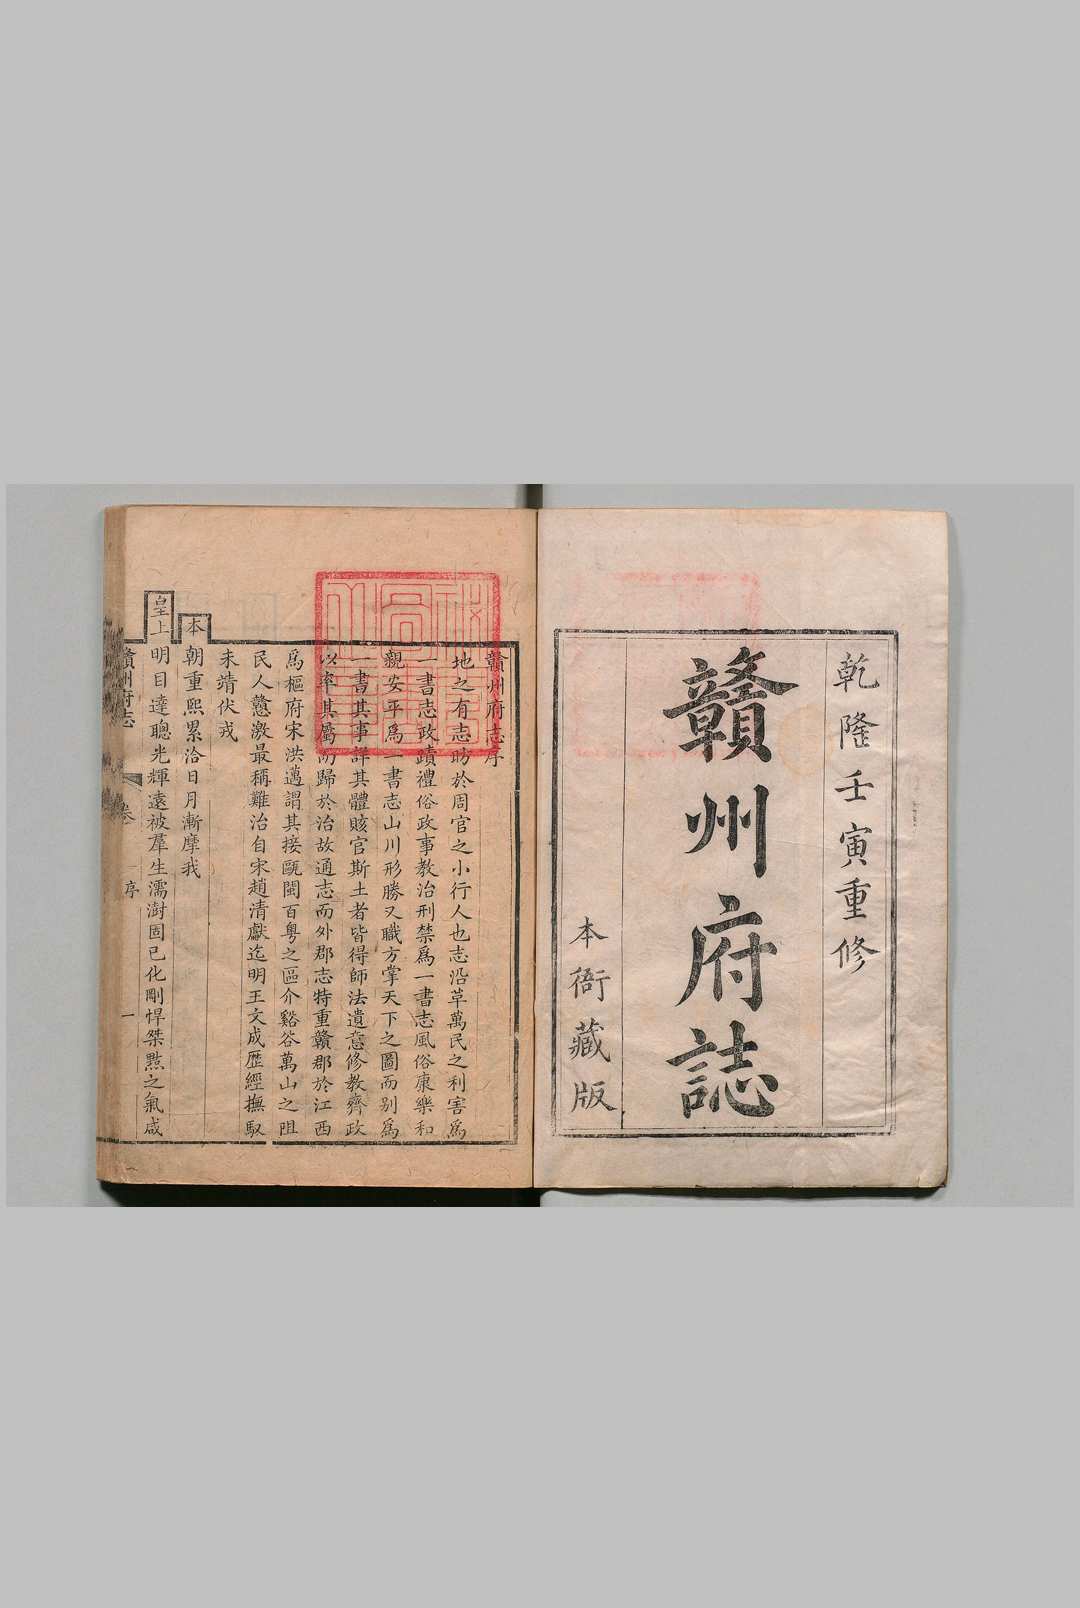 乾隆壬寅重修
贛州府誌
本衙藏版
贛州府志序
地之有志昉於周官之小行人也志沿革萬民之利害爲
一書志政蹟禮俗政事教治刑禁爲一書志風俗康樂和
親安平爲一書志山川形勝又職方掌天下之圖而别爲
一書其事詳其體賅官斯土者皆得師法遺意修教齊政
以率其屬而歸於治故通志而外郡志特重贛郡於江西
爲樞府宋洪邁謂其接甌閩百粤之區介谿谷萬山之阻
民人戇激最稱難治自宋趙清獻迄明王文成歷經撫馭
未靖伏戎
本朝重熙累洽日月漸摩我
皇上明目達聰光輝遠被羣生濡澍固已化剛悍桀黠之氣咸
贛州府志 卷 序 一